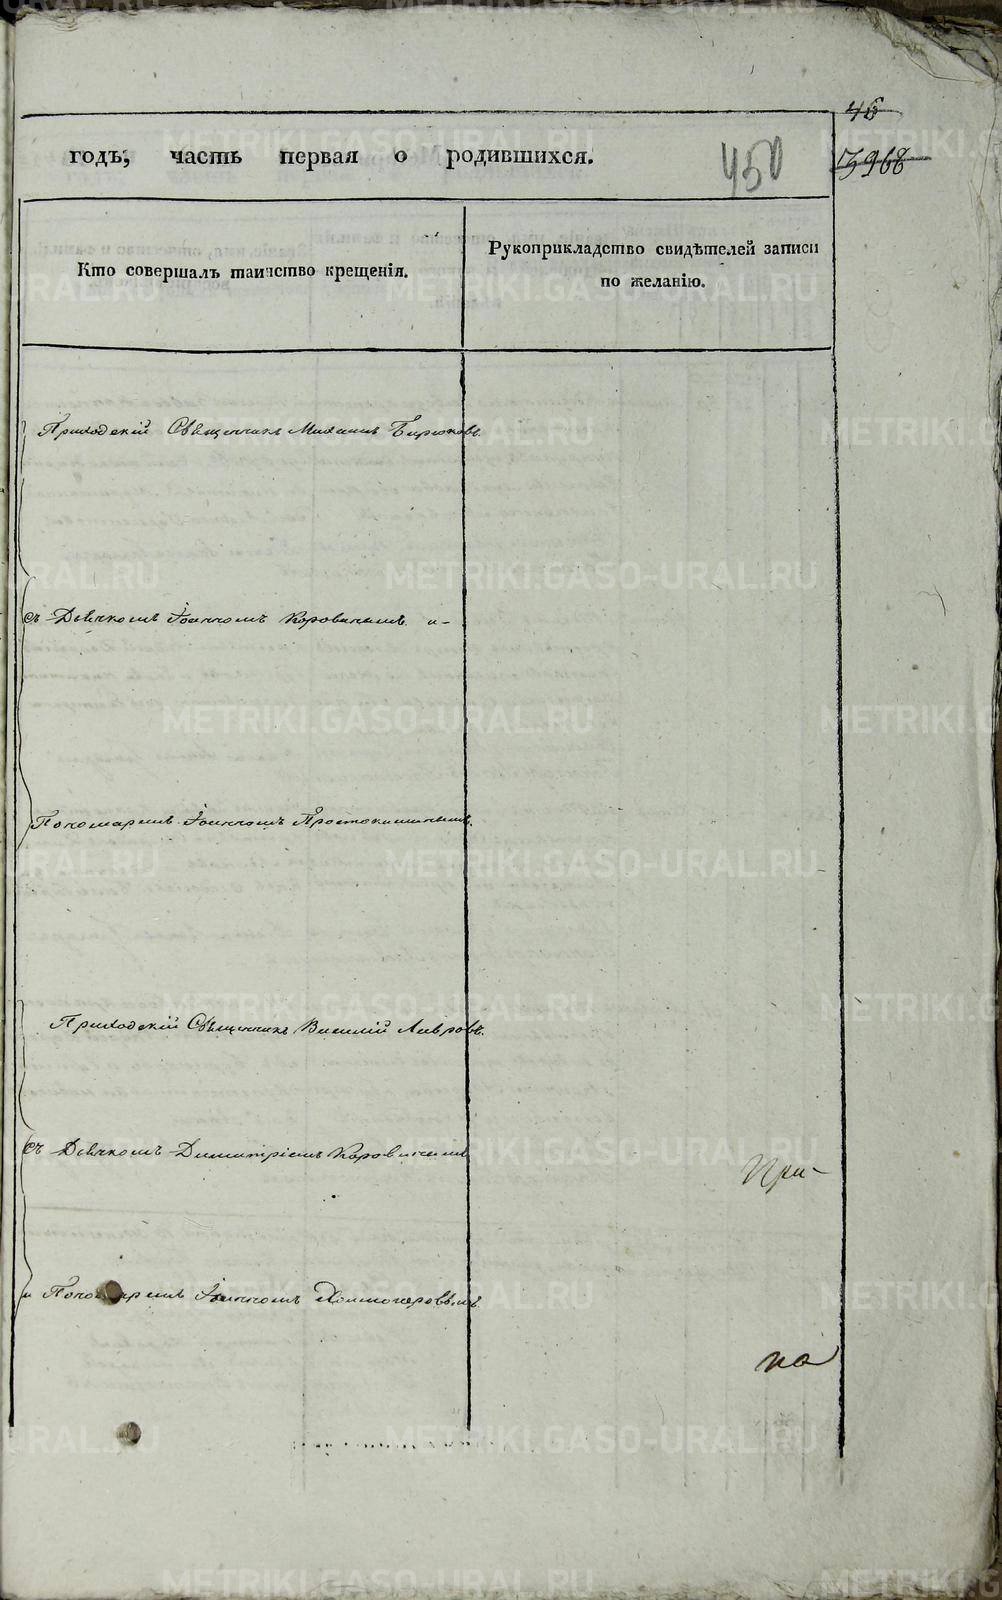 46
годъ, часть первая о родившихся.
450
Кто совершалъ таинство крещенія.
Рукоприкладство свидѣтелей записи
по желанію.
Приходскій Священникъ Михаилъ Бирюковъ.
съ Дьячкомъ Іоанномъ Коровинымъ и-
Пономаремъ Іоанномъ Простокишинымъ.
Приходскій Священникъ Василій Лавровъ.
съ Дьячкомъ Димитріемъ Коровинымъ
и Пономаремъ Іоанномъ
При-
на
METRIKI.GASO-URAL.RU